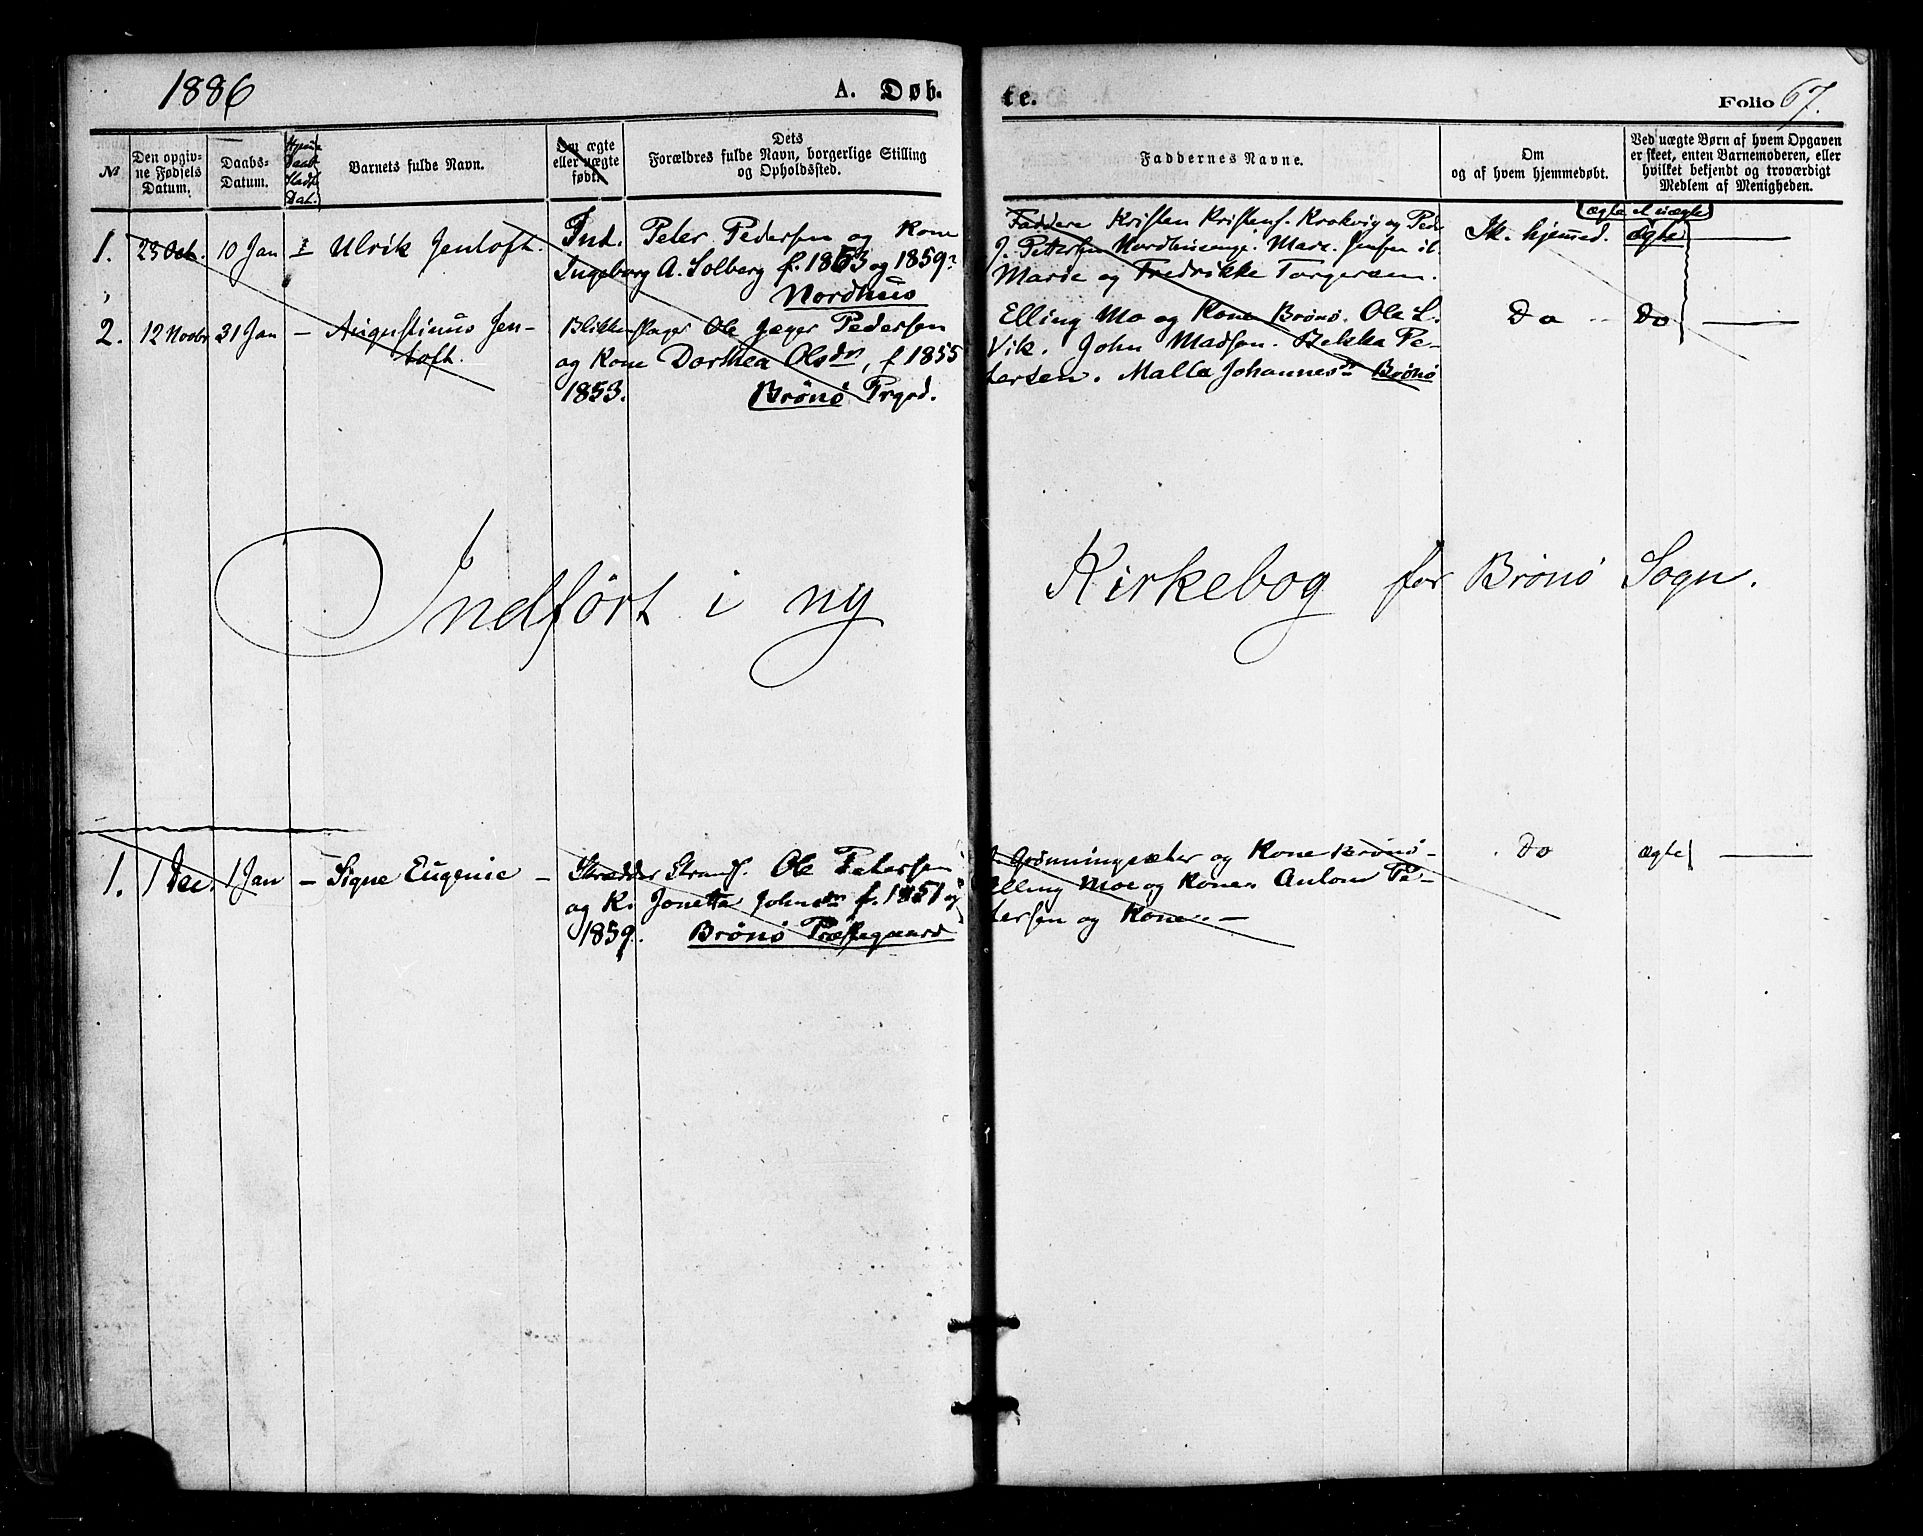 1886 A. Døb-
te. Folio 67.
№
Den opgiv-
ne Fødsels
Datum.
Daabs-
Datum.
Barnets fulde Navn.
Om ægte
eller uægte
født.
Dets
Forældres fulde Navn, borgerlige Stilling
og Opholdssted.
Faddernes Navne.
Om
og af hvem hjemmedøbt.
Ved uægte Børn af hvem Opgaven
er skeet, enten Barnemoderen, eller
hvilket bekjendt og troværdigt
Medlem af Menigheden.
ægte el uægte
1. 23 Oct. 10 Jan Ulrik Jentoft. Ind. Peter Pedersen og Kone
Ingeborg A. Solberg f. 1863 og 1859
Nordhus
Faddere Kristen Kristens. Krokvig og Peder
J. Pettersen Nordhuseng. Mare. Jensen
Marie og Fredrikke Torgersen.
Ik. hjemmed. ægte —
2. 12 Novbr 31 Jan — Augustinus Jen-
toft.
Blikkenslager Ole Jæger Pedersen
og Kone Dorthea Olsdr, f 1855
1853. Brønø Prgrd.
Elling Mo og Kone Brønø. Ole L.
Vik. John Madsen. Bekka Pe-
tersen. Malla Johannesdr Brønø
Do Do —
Indført i ny Kirkebog for Brønø Sogn.
1. 1 Dec. 1 Jan — Signe Eugenie — Skrædder Ole Petersen
og K. Jonetta Johnsdr f. 1851 og
1859. Brønø Præstegaard
J. Grønningsæter og Kone Brønø-
Elling Moe og Kone. Anton Pe-
tersen og Kone. —
Do ægte —